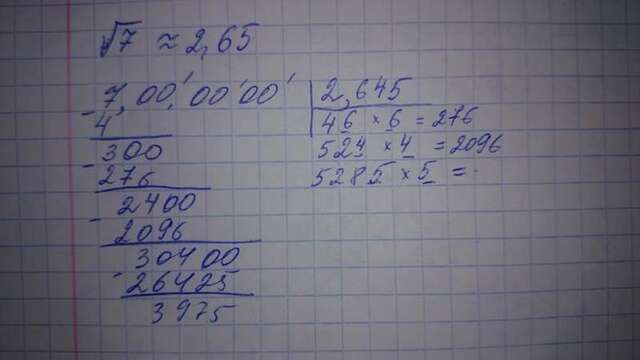 √7 ≈ 2,65
7,00'00'00' | 2,645
- 4
46 × 6 = 276
300
524 × 4 = 2096
- 276
5285 × 5 =
2400
- 2096
30400
- 26425
3975